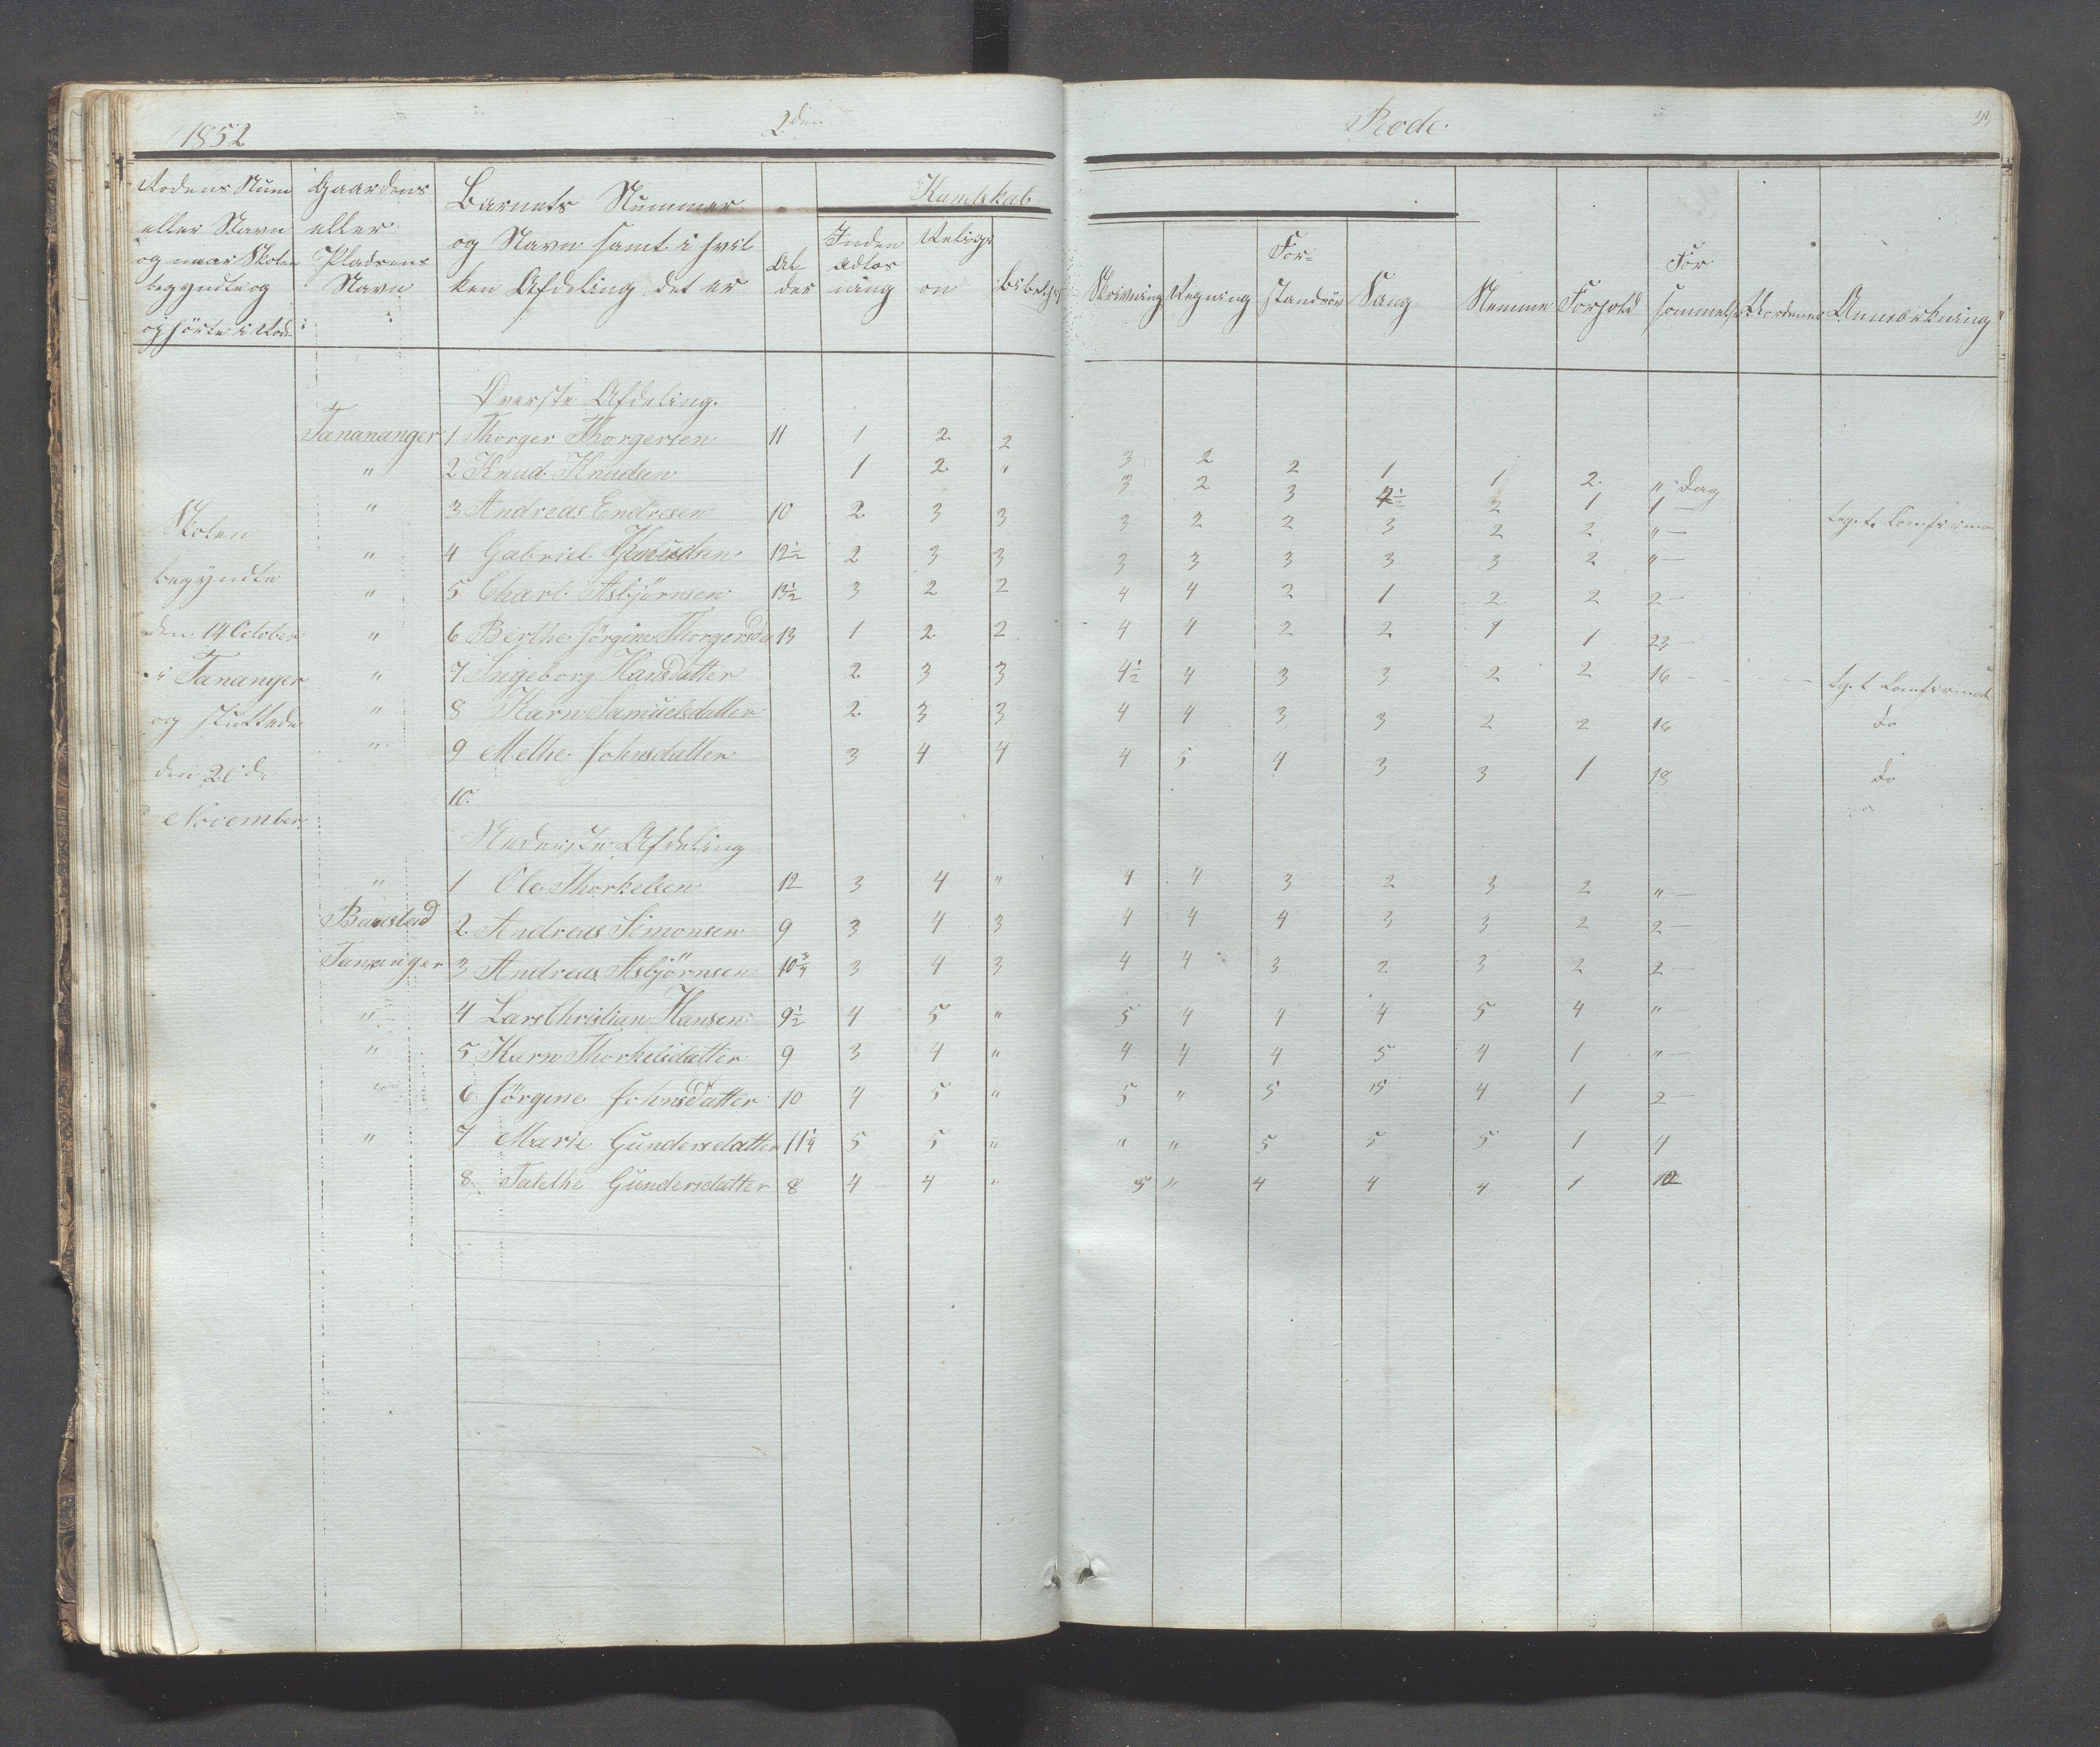 1852 2den Rode
Rodens Num eller Navn og naar Skolen begyndte og ophörte i Rode
Gaardens eller Pladsens Navn
Barnets Nummer og Navn samt i hvilken Afdeling det er
Alder
Kundskab
Indenadlæsning
Religion
Bibelh
Skrivning
Regning
Forstandsöv
Sang
Nemme
Forhold
Forsommelse
Anmærkning
Överste Afdeling.
Tanananger 1 Thorger Thorgersen 11 1 2 2 3 2 2 1 1 2 " Dag
" 2 Knud Knudsen 1 2 " 3 2 3 2 1 1 —
" 3 Andreas Endresen 10 2 3 3 3 2 2 3 2 2 " —
" 4 Gabriel Knudsen 12½ 2 3 3 3 3 3 3 3 2 " —
" 5 Charl Asbjörnsen 13½ 3 2 2 4 4 2 1 2 2 2 —
" 6 Berthe Jörgine Thorgersd 13 1 2 2 4 4 2 2 1 1 23 —
" 7 Ingeborg Hansdatter 2 3 3 4½ 4 3 3 2 2 16
" 8 Karn Samuelsdatter 2 3 3 4 4 3 3 2 2 16 do
" 9 Methe Johnsdatter 3 4 4 4 5 4 3 3 1 18 do
10.
Skolen
begyndte
den 14 October
i Tananger
og sluttede
den
November
Nederste Afdeling
" 1 Ole Thorkelsen 12 3 4 " 4 4 3 2 3 2 " —
2 Andreas Simonsen 9 3 4 3 4 4 4 3 3 2 2 —
Tananger 3 Andreas Asbjörnsen 10¾ 3 4 3 4 4 3 2 3 2 2 —
" 4 Lars Christian Hansen 9½ 4 5 " 5 4 4 4 5 4 " —
" 5 Karn Thorkelsdatter 9 3 4 " 4 4 4 5 4 1 " —
" 6 Jörgine Johnsdatter 10 4 5 " 5 " 5 5 4 1 2 —
" 7 Marie Gundersdatter 11¼ 5 5 " " " 5 5 5 1 4
8 Talethe Gundersdatter 8 4 4 " 5 " 4 4 4 1 12